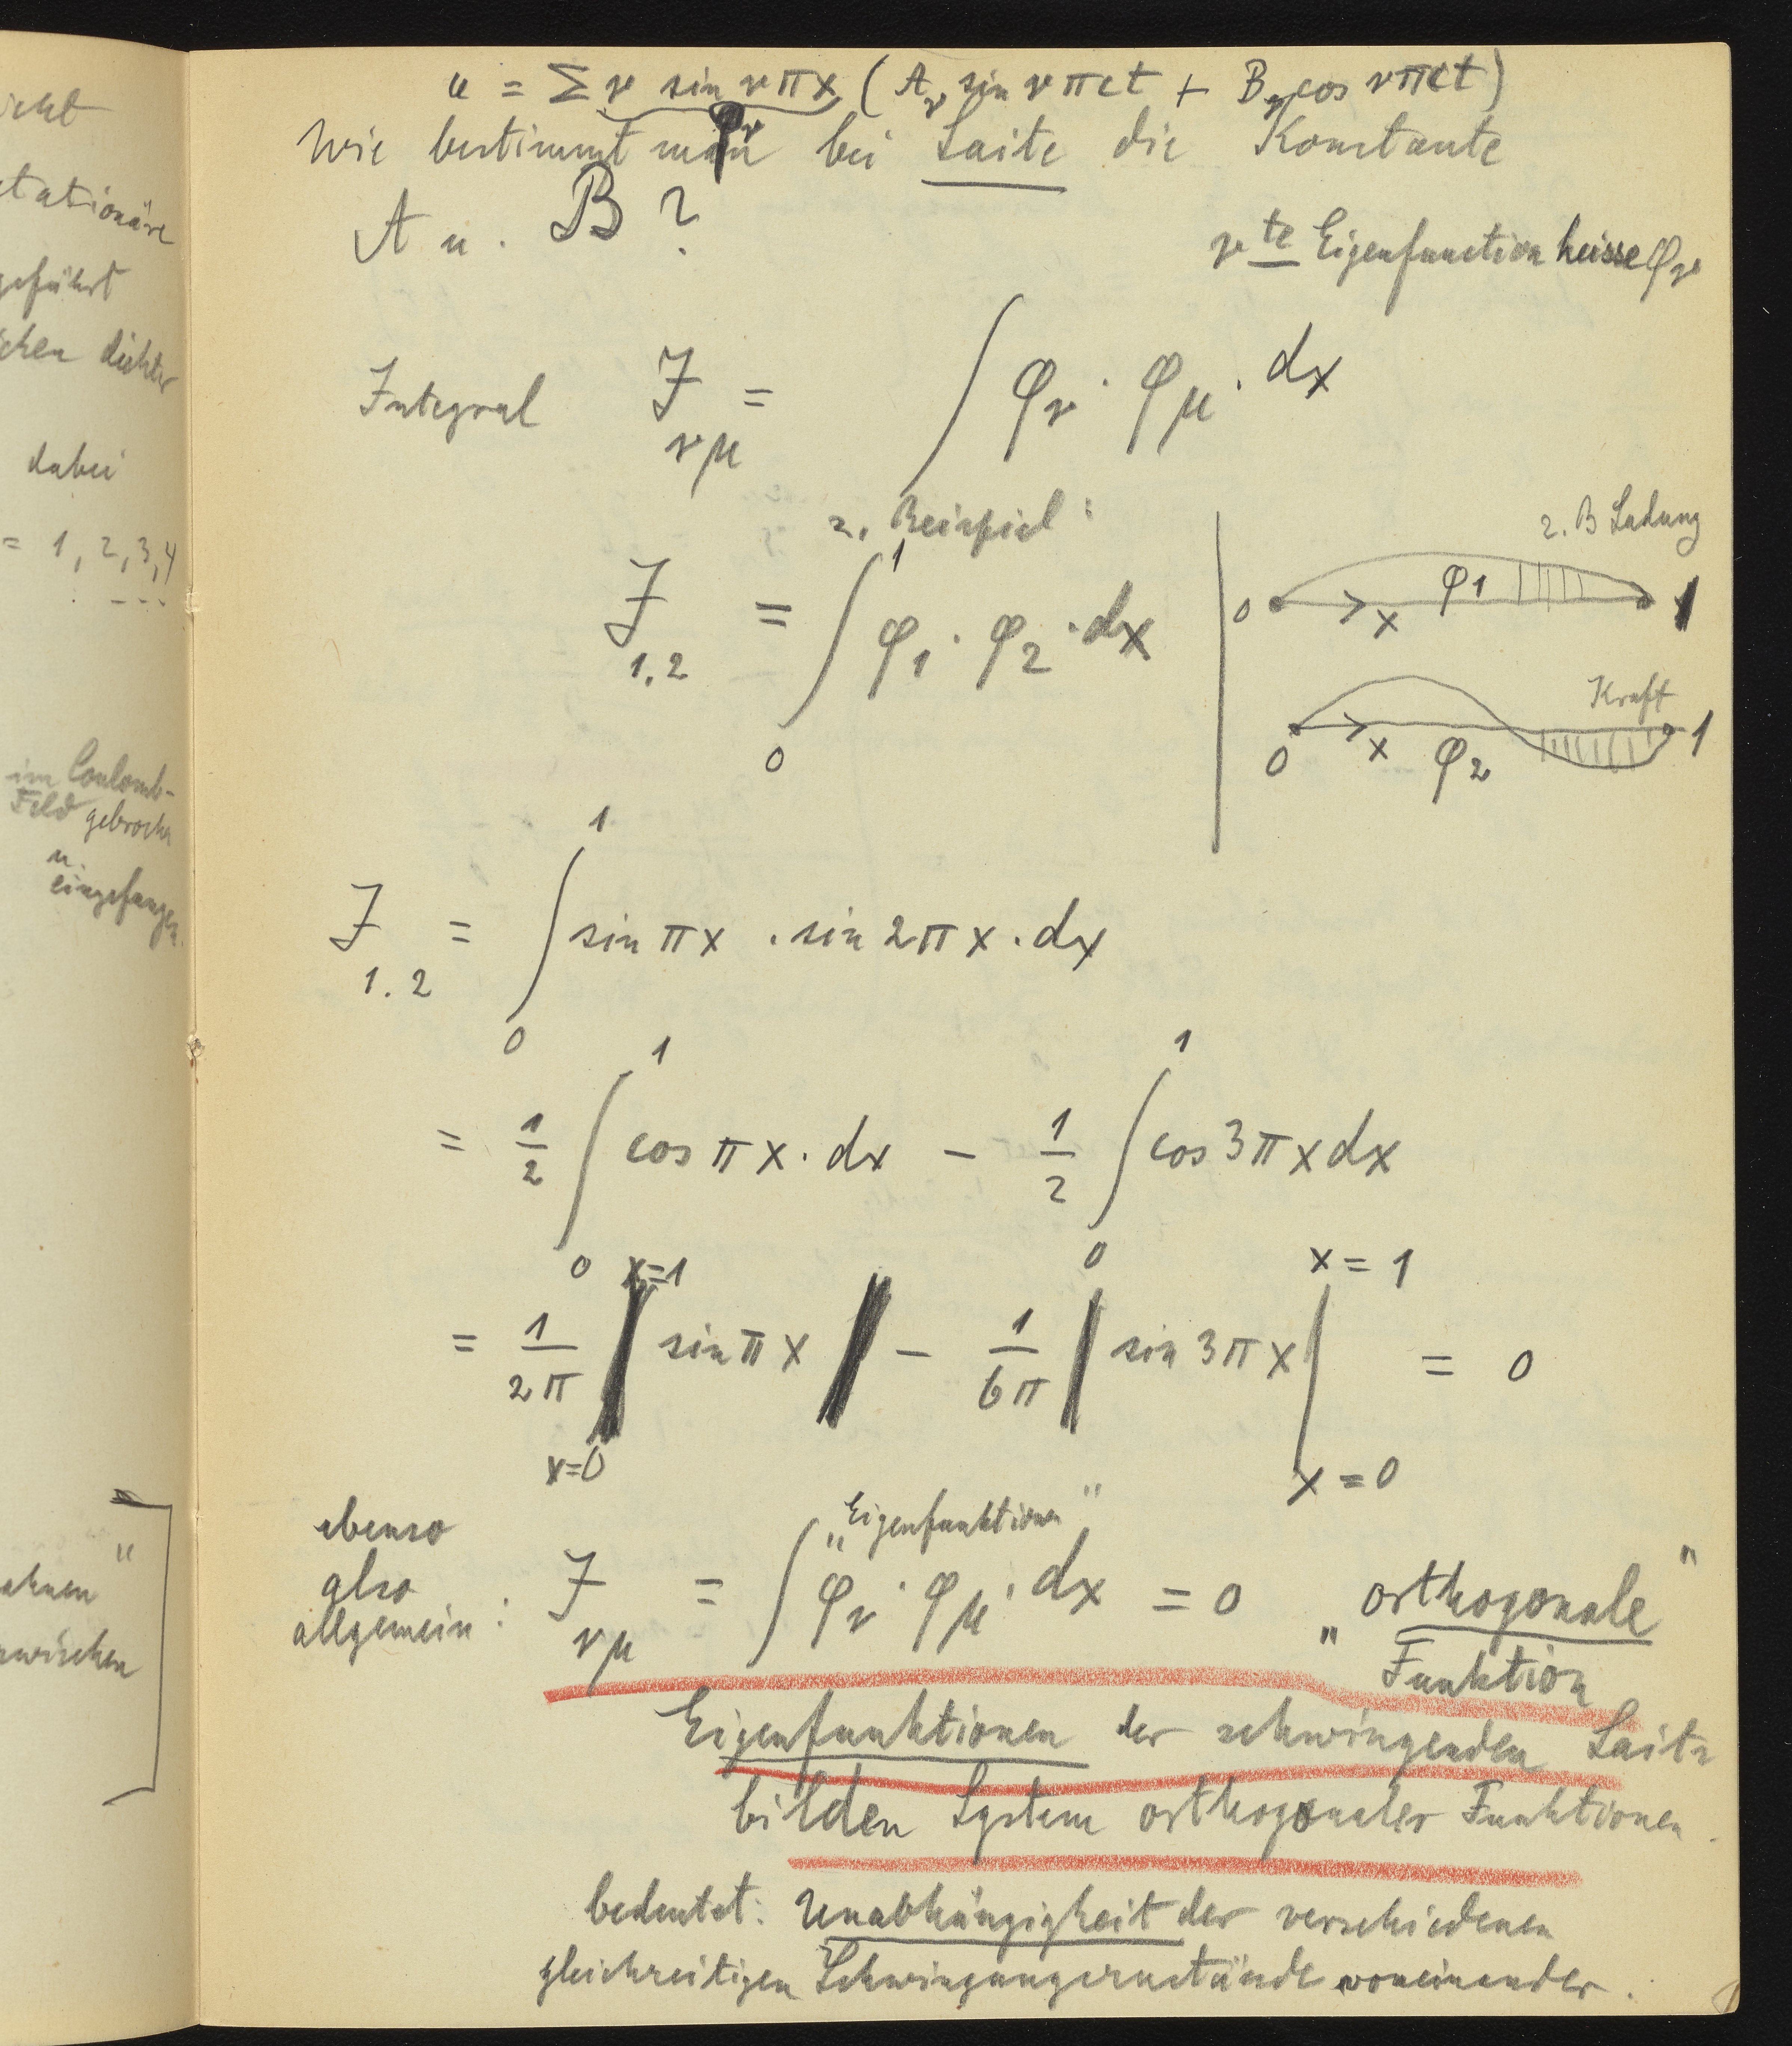 icht
stationäre
geführt
schen dichter
dabei
= 1, 2, 3, 4
. - - -
im Coulomb-
Feld gebrochen
u.
eingefangen.
"
zwischen
u = Σν sin νπx (Aν sin νπct + Bν cos νπct)
φν
Wie bestimmt man bei Saite die Konstante
A u. B ?
νte Eigenfunction heisse φν
Integral J νμ = ∫ φν · φμ · dx
z. Beispiel:
J 1.2 = ∫₀¹ φ₁ · φ₂ · dx
z. B Ladung
0 → x φ1 1
Kraft
0 → x φ2 1
J 1.2 = ∫₀¹ sin πx · sin 2πx · dx
= 1/2 ∫₀¹ cos πx · dx - 1/2 ∫₀¹ cos 3πx dx
= 1/2π | sin πx | x=1 x=0 - 1/6π | sin 3πx | x=1 x=0 = 0
ebenso
also
allgemein:
„Eigenfunktionen"
J νμ = ∫ φν · φμ · dx = 0 „orthogonale"
Funktion
Eigenfunktionen der schwingenden Saite
bilden System orthogonaler Funktionen.
bedeutet: Unabhängigkeit der verschiedenen
gleichzeitigen Schwingungszustände voneinander.